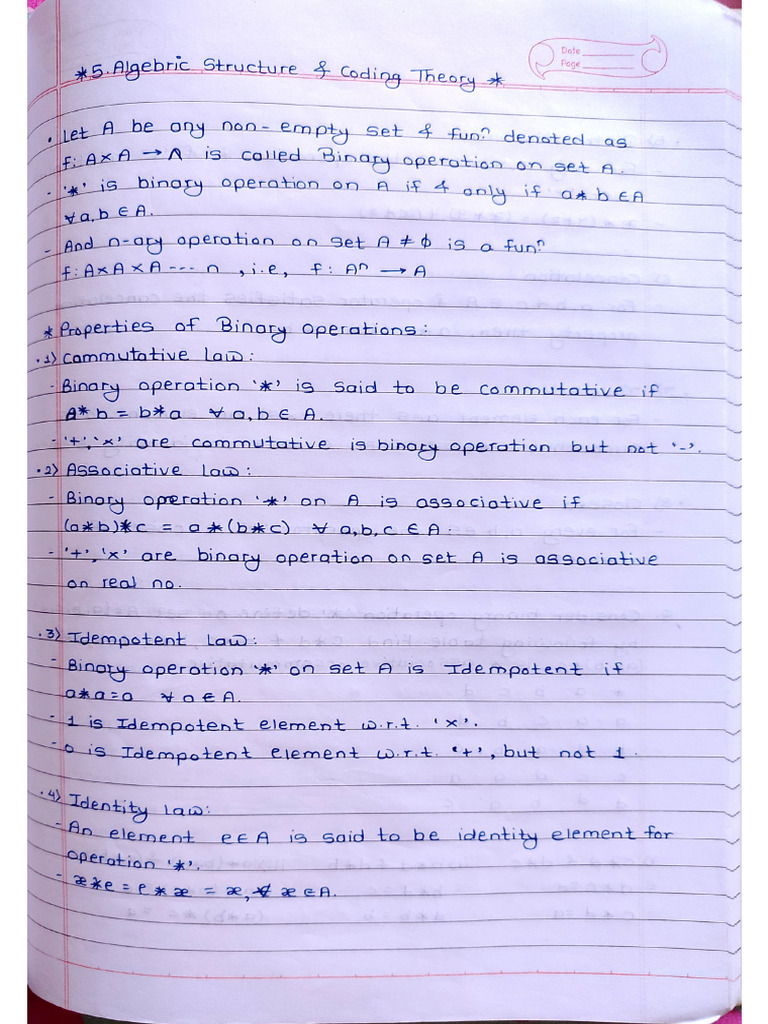 Date
Page
* 5. Algebric Structure & Coding Theory *
• Let A be any non-empty set & funⁿ denoted as
f: A×A → A is called Binary operation on set A.
- '*' is binary operation on A if & only if a*b∈A
∀a,b∈A.
- And n-ary operation on set A ≠ ϕ is a funⁿ
f: A×A×A --- n , i.e, f: Aⁿ → A
* Properties of Binary operations:
• 1) Commutative Law:
- Binary operation '*' is said to be commutative if
A*b = b*a ∀ a,b∈A.
- '+','×' are commutative is binary operation but not '-'.
• 2) Associative Law:
- Binary operation '*' on A is associative if
(a*b)*c = a*(b*c) ∀ a,b,c ∈A.
- '+','×' are binary operation on set A is associative
on real no.
• 3) Idempotent Law:
- Binary operation '*' on set A is Idempotent if
a*a=a ∀ a∈A.
- 1 is Idempotent element w.r.t. '×'.
- 0 is Idempotent element w.r.t. '+', but not 1.
• 4) Identity law:
- An element e∈A is said to be identity element for
operation '*'.
- x*e = e*x = x, ∀ x∈A.